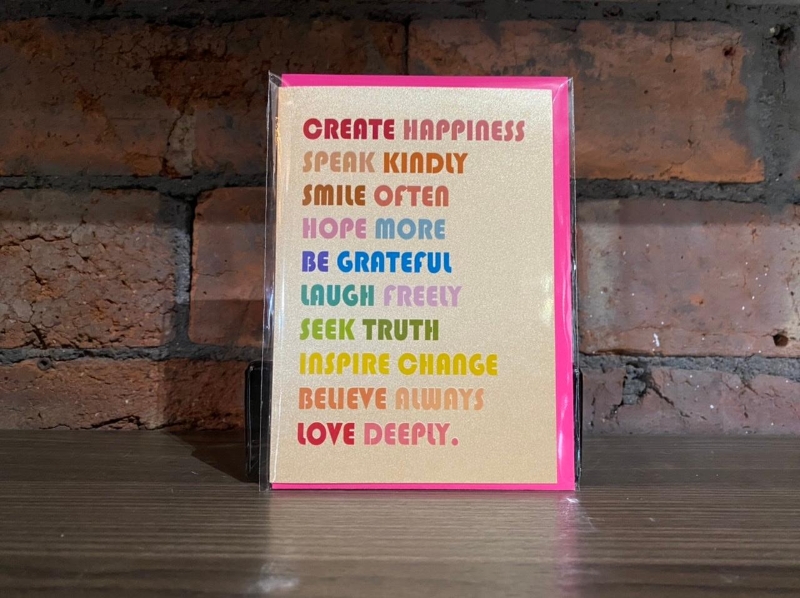 CREATE HAPPINESS
SPEAK KINDLY
SMILE OFTEN
HOPE MORE
BE GRATEFUL
LAUGH FREELY
SEEK TRUTH
INSPIRE CHANGE
BELIEVE ALWAYS
LOVE DEEPLY.